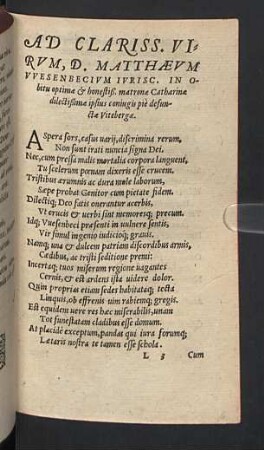 AD CLARISS. VI-
RVM, D. MATTHÆVM
VVESENBECIVM IVRISC. IN O-
bitu optimæ & honestiss. matronæ Catharinæ
dilectissimæ ipsius coniugis piè defun-
ctæ Vitebergæ.
ASpera sors, casus varij, discrimina rerum,
Non sunt irati nuncia signa Dei.
Nec, cum pressa malis mortalia corpora languent,
Tu scelerum pœnam dixeris esse crucem.
Tristibus ærumnis ac dura mole laborum,
Sæpe probat Genitor cum pietate fidem.
Dilectiq; Deo fatis onerantur acerbis,
Vt crucis & verbi sint memoresq; precum.
Idq; Vuesenbeci præsenti in vulnere sentis,
Vir simul ingenio iudicioq; grauis.
Namq; una & dulcem patriam discordibus armis,
Cædibus, ac tristi seditione premi:
Incertaq; tuos miserum regione uagantes
Cernis, & est ardens ista uidere dolor.
Quin proprias etiam sedes habitataq; tecta
Linquis, ob effrenis uim rabiemq; gregis.
Est equidem uere res hæc miserabilis, unam
Tot funestatam cladibus esse domum.
At placidè exceptum, pandas qui iura forumq;
Lætaris nostra te tamen esse schola.
L 3 Cum